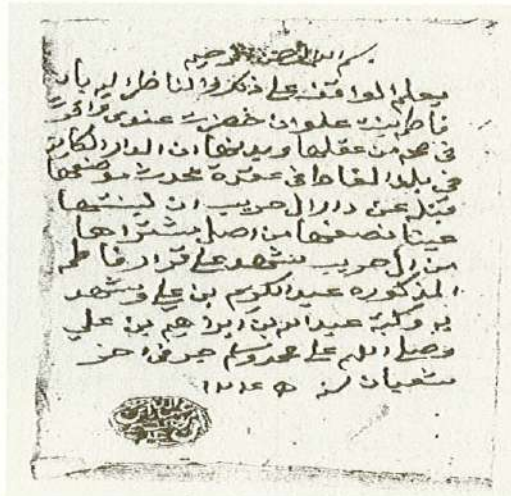 بسم الله الرحمن الرحيم
يعلم الواقف على ذكره الناظر اليه بان
فاطم بنت علوان حضرت عندي واقرت
في صحه من عقلها وبدنها ان الدار الكاينه
في بلد الغاط في عقدة موضعها
قبله عن دار ال حريب ان لبنتها
نصفها من اصل مشتراها
من ال حريب شهد على قرار فاطم
المذكوره عبدالكريم بن علي وشهد
به وكتبه عبدالله بن ابراهيم بن علي
وصلى الله على محمد وسلم جرى في اخر
شعبان سنه